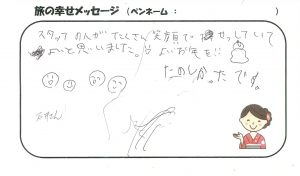 旅の幸せメッセージ（ペンネーム：　　　　）
スタッフの人がたくさん笑顔でせっしていて
よいと思いました。はよいお年を!!
たのしかったです。